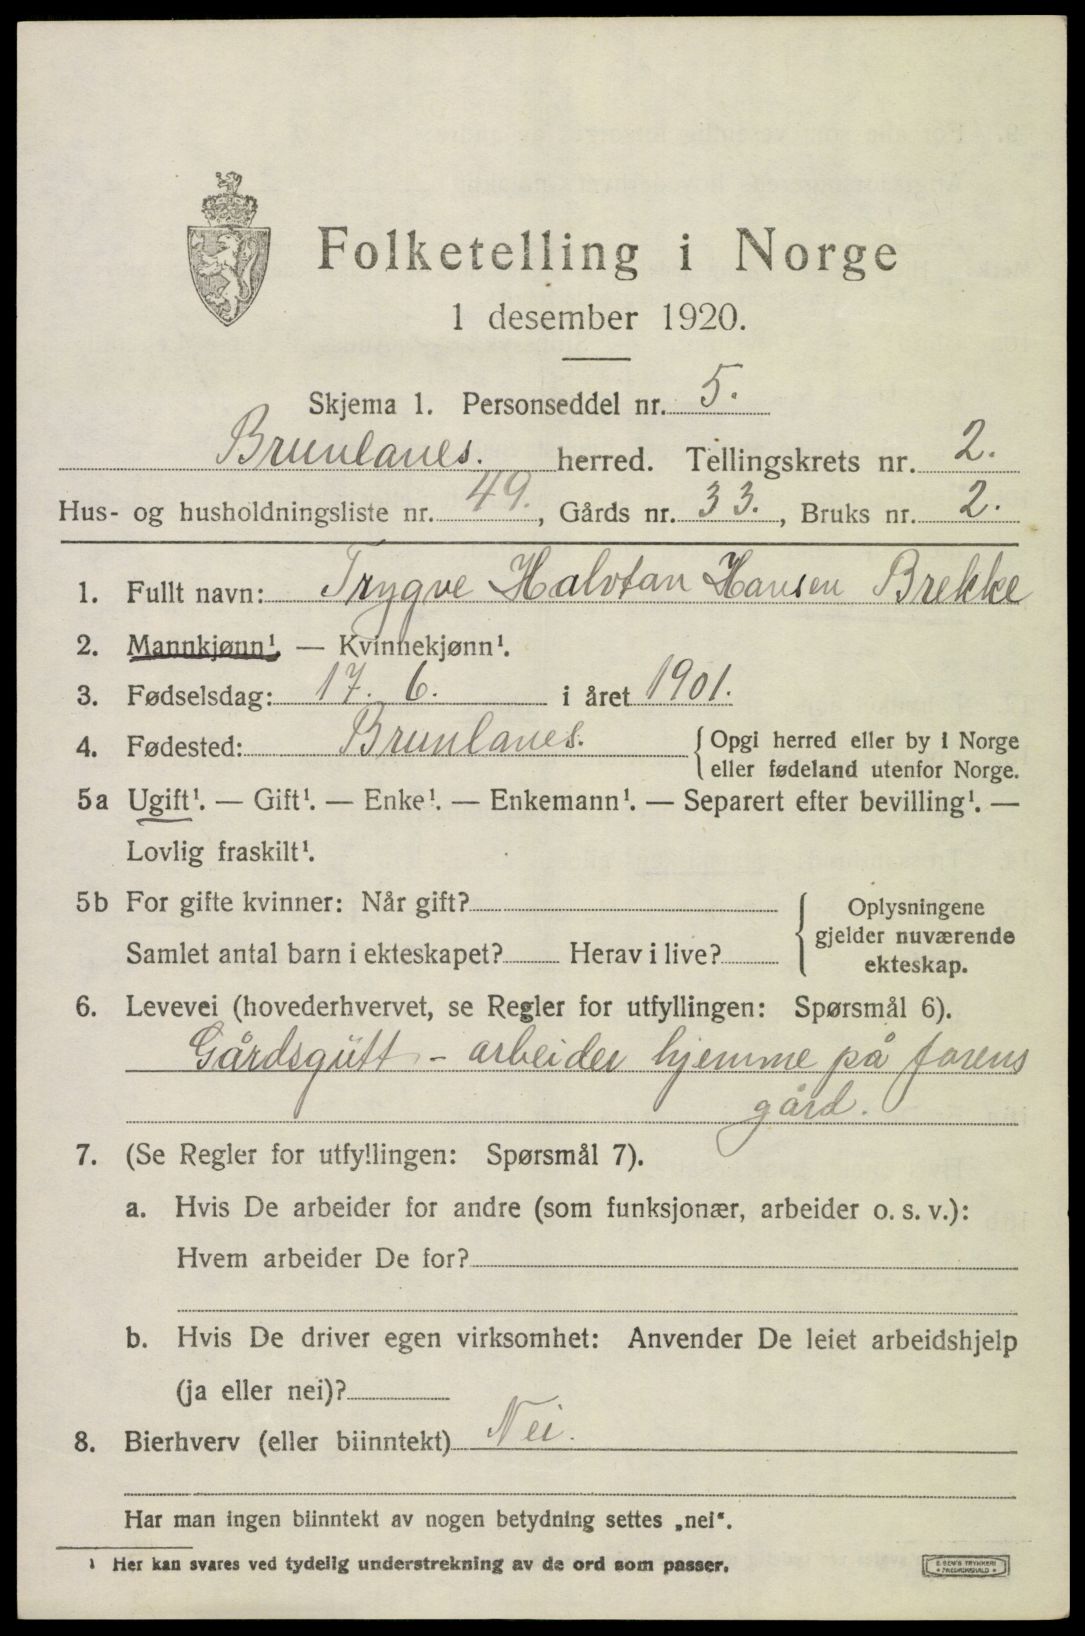 Folketelling i Norge
1 desember 1920.
Skjema 1. Personseddel nr. 5.
Brunlanes. herred. Tellingskrets nr. 2.
Hus- og husholdningsliste nr. 49., Gårds nr. 33., Bruks nr. 2.
1. Fullt navn: Trygve Halvtan Hansen Brekke
2. Mannkjønn¹. — Kvinnekjønn¹.
3. Fødselsdag: 17. 6. i året 1901.
4. Fødested: Brunlanes. { Opgi herred eller by i Norge
eller fødeland utenfor Norge.
5a Ugift¹. — Gift¹. — Enke¹. — Enkemann¹. — Separert efter bevilling¹. —
Lovlig fraskilt¹.
5b For gifte kvinner: Når gift?
Samlet antal barn i ekteskapet? Herav i live?
{ Oplysningene
gjelder nuværende
ekteskap.
6. Levevei (hovederhvervet, se Regler for utfyllingen: Spørsmål 6).
Gårdsgutt - arbeider hjemme på farens
gård.
7. (Se Regler for utfyllingen: Spørsmål 7).
a. Hvis De arbeider for andre (som funksjonær, arbeider o. s. v.):
Hvem arbeider De for?
b. Hvis De driver egen virksomhet: Anvender De leiet arbeidshjelp
(ja eller nei)?
8. Bierhverv (eller biinntekt) Nei.
Har man ingen biinntekt av nogen betydning settes „nei“.
¹ Her kan svares ved tydelig understrekning av de ord som passer.